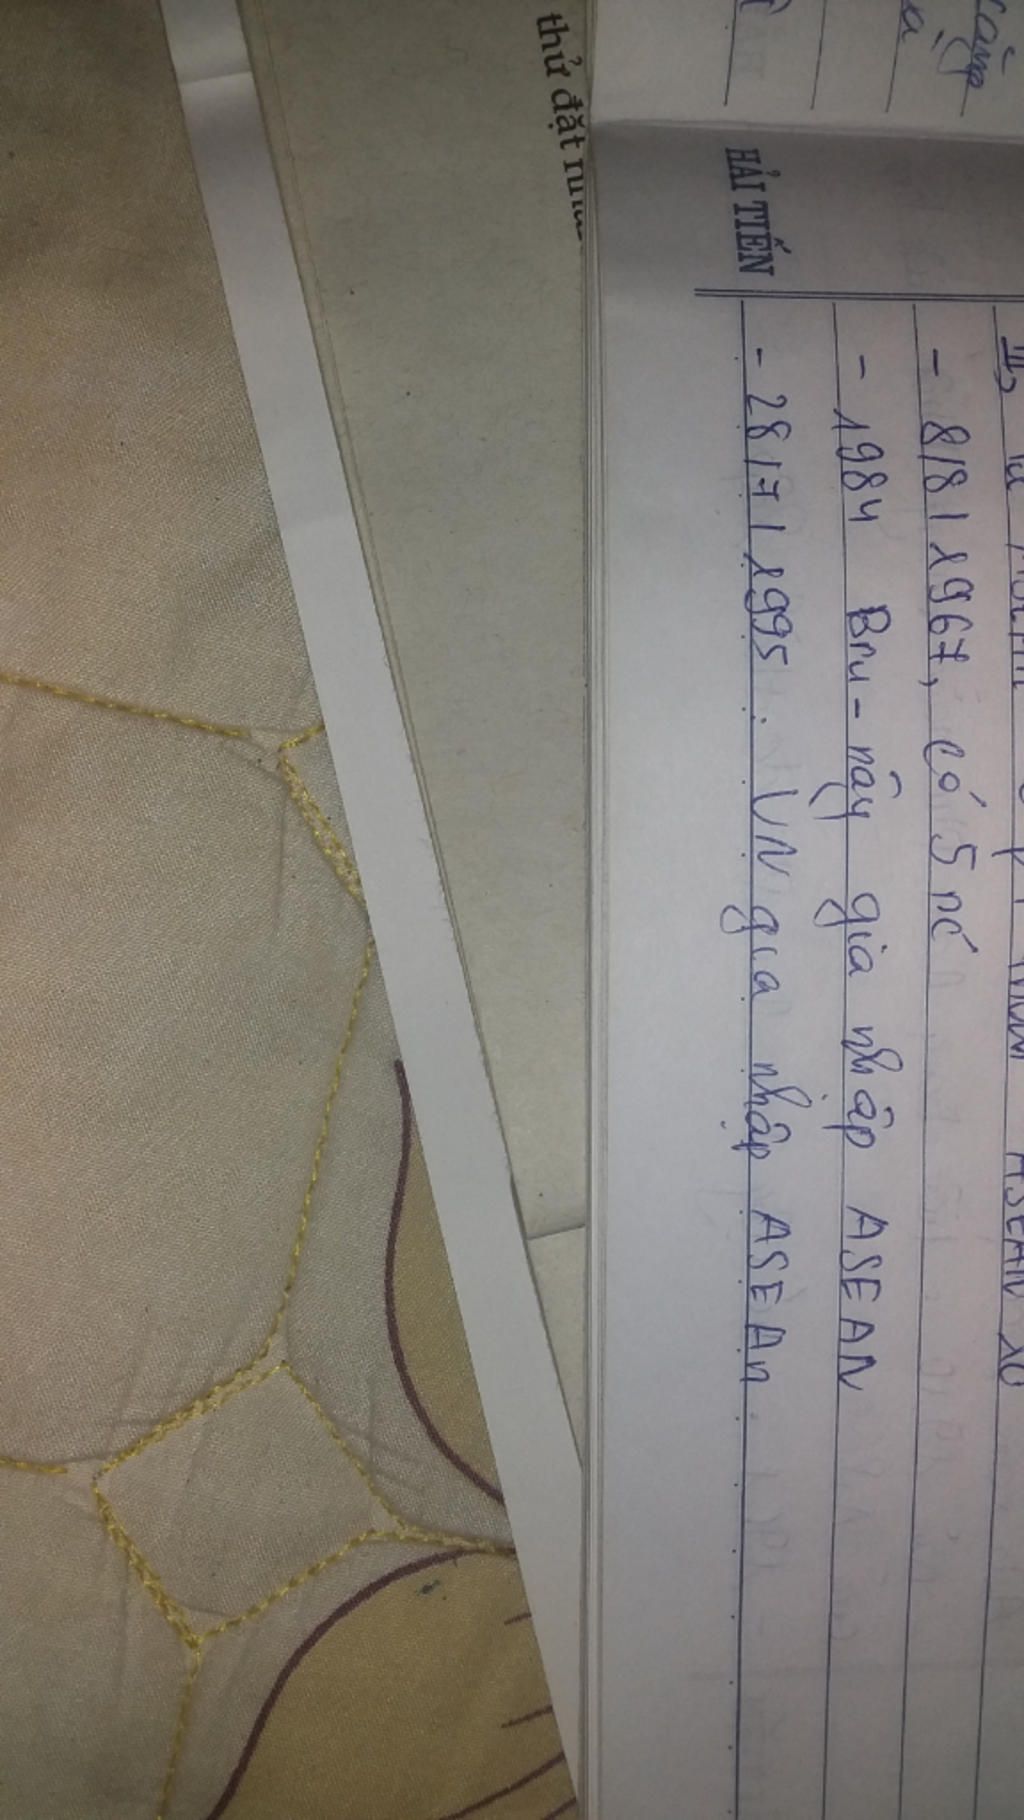 II, Từ ASEAN 6 phát triển ASEAN 10
- 8/8/1967, có 5 nc
- 1984 Bru-nây gia nhập ASEAN
- 28/7/1995. VN gia nhập ASEAn.
HẢI TIẾN
thử đặt